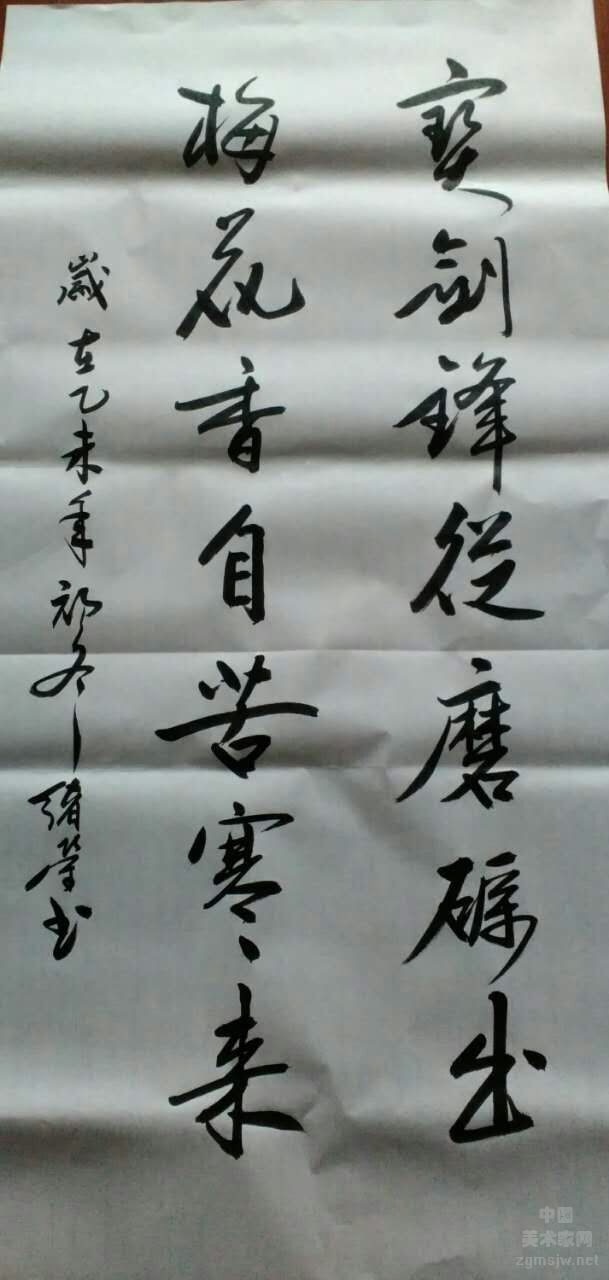 寶劍鋒從磨砺出
梅花香自苦寒来
歲在乙未年初冬
書
中国
美术家网
zgmsjw.net